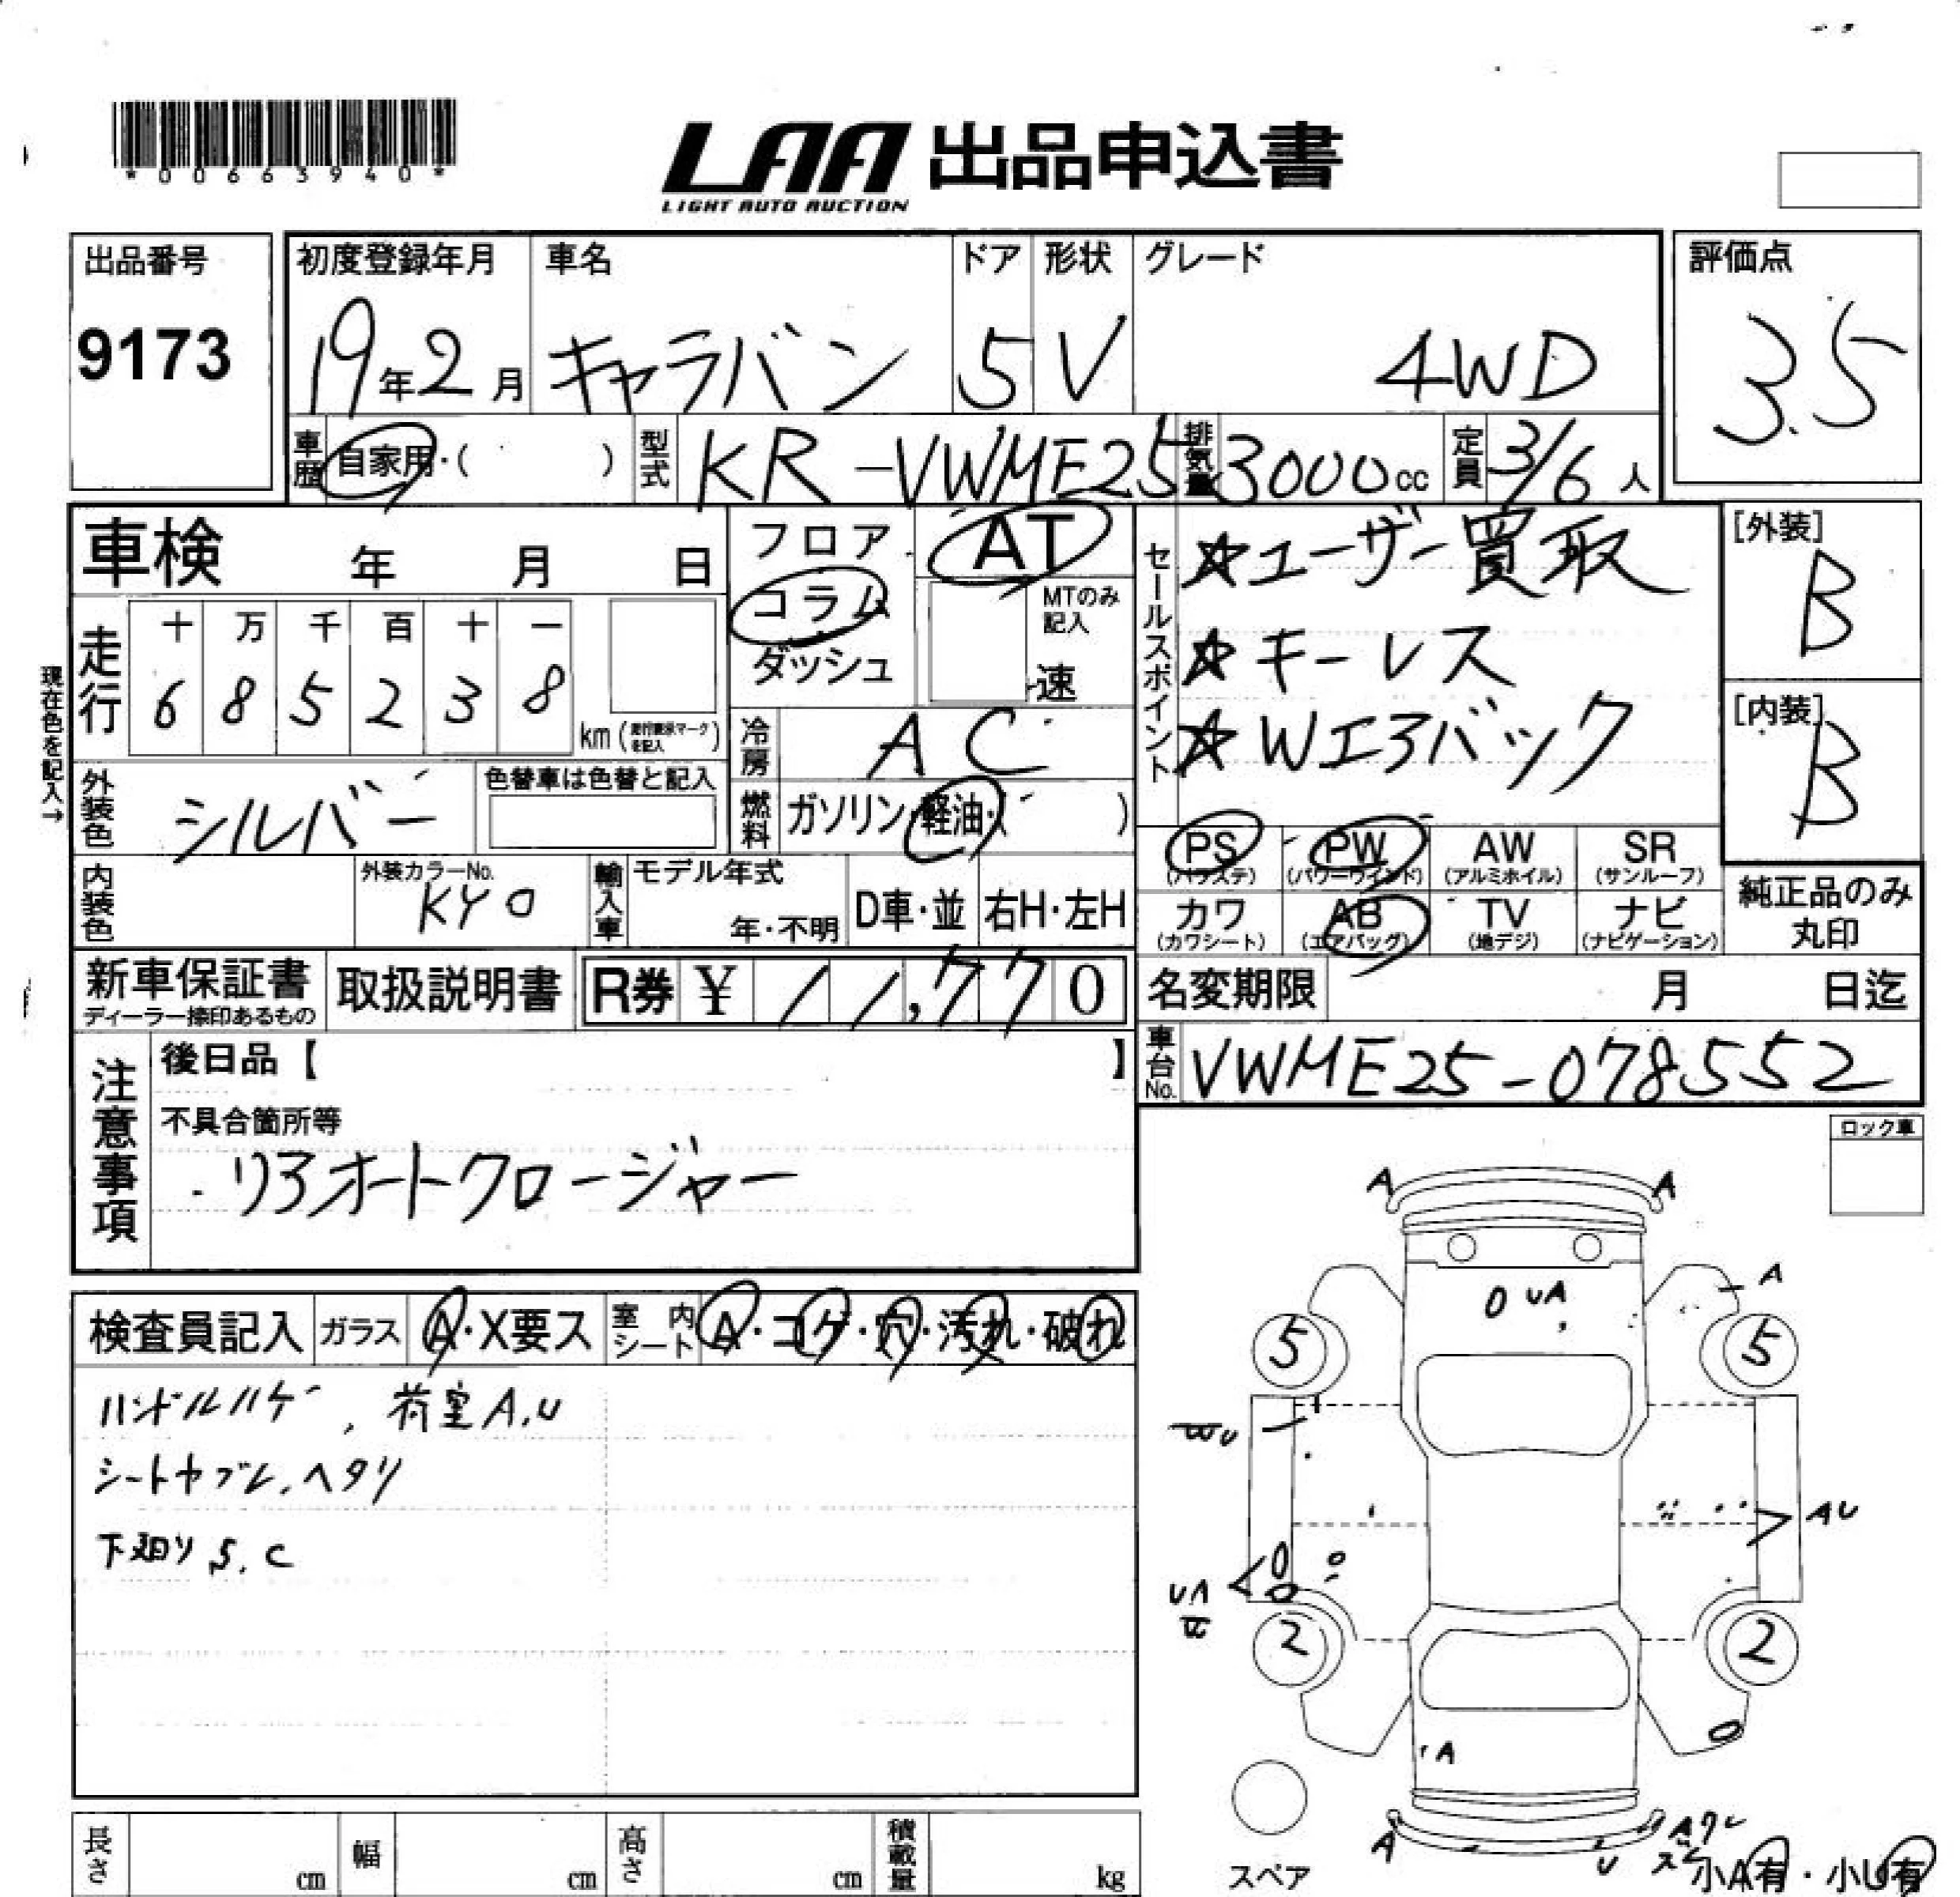 *00663940*
LAA 出品申込書
LIGHT AUTO AUCTION
出品番号
9173
初度登録年月
19年2月
車名
キャラバン
ドア
5
形状
V
グレード
4WD
評価点
3.5
車歴
自家用・( )
型式
KR-VWME25
排気量
3000cc
定員
3/6人
車検 年 月 日
走行
十 万 千 百 十 一
6 8 5 2 3 8
km
現在色を記入→
フロア
コラム
ダッシュ
AT
MTのみ
記入
速
冷房
AC
燃料
ガソリン・軽油・( )
セールスポイント
☆ユーザー買取
☆キーレス
☆Wエアバック
[外装]
B
[内装]
B
外装色
シルバー
色替車は色替と記入
内装色
外装カラーNo.
KY0
輸入車
モデル年式
年・不明
D車・並
右H・左H
PS
(パワステ)
PW
(パワーウインド)
AW
(アルミホイル)
SR
(サンルーフ)
カワ
(カワシート)
AB
(エアバッグ)
TV
(地デジ)
ナビ
(ナビゲーション)
純正品のみ
丸印
新車保証書
ディーラー捺印あるもの
取扱説明書
R券 ¥ 11,770
名変期限 月 日迄
車台No.
VWME25-078552
注意事項
後日品【 】
不具合箇所等
・リアオートクロージャー
ロック車
検査員記入
ガラス
A・X要ス
室内シート
A・コゲ・穴・汚れ・破れ
ハンドルハゲ、荷室A.U
シートヤブレ、ヘタリ
下廻りS.C
A
A
UA
A
5
5
WU
AU
UA
2
2
A
A
U
スペア
小A有・小U有
長さ cm
幅 cm
高さ cm
積載量 kg